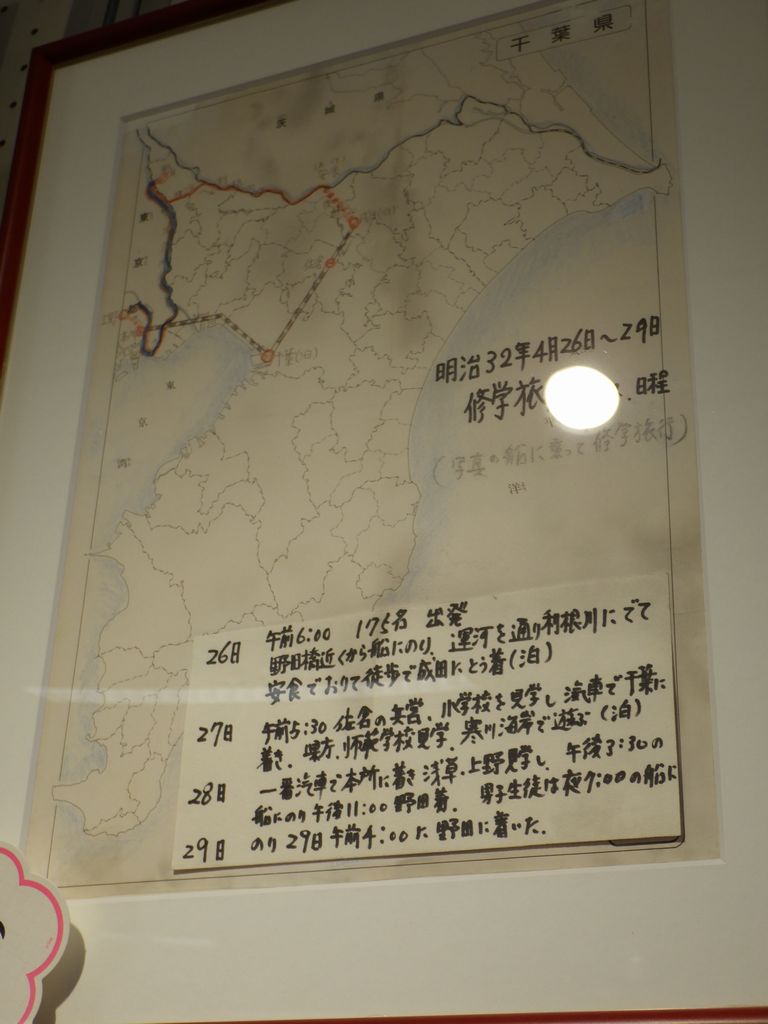 千葉県
茨城県
東京
佐倉
千葉(泊)
東京湾
洋
明治32年4月26日～29日
修学旅 日程
(写真の船に乗って修学旅行)
26日 午前6:00 175名 出発
野田橋近くから船にのり、運河を通り利根川にでて
安食でおりて徒歩で成田にとう着(泊)
27日 午前5:30 佐倉の兵営、小学校を見学し汽車で千葉に
着き、県庁、師範学校見学、寒川海岸で遊ぶ(泊)
28日 一番汽車で本所に着き浅草・上野見学し、午後3:30の
船にのり午後11:00野田着。男子生徒は夜7:00の船に
29日 のり29日午前4:00に野田に着いた。